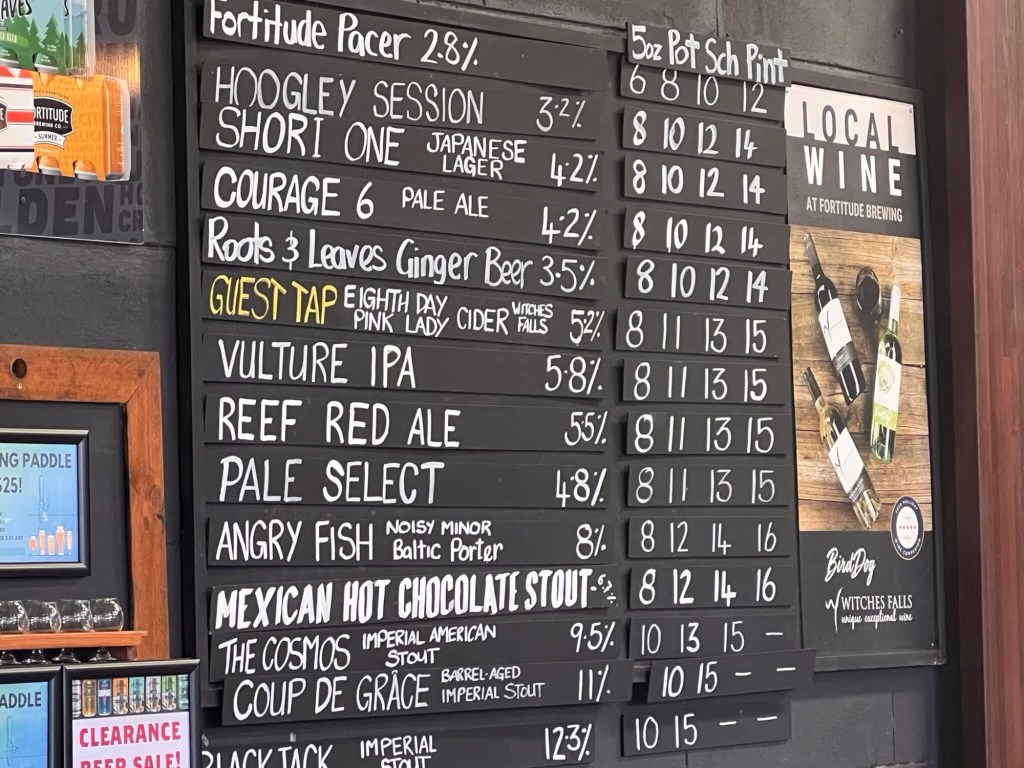 Fortitude Pacer 2.8%
5oz Pot Sch Pint
6 8 10 12
HOOGLEY SESSION 3.2%
8 10 12 14
SHORT ONE JAPANESE LAGER 4.2%
8 10 12 14
COURAGE 6 PALE ALE 4.2%
8 10 12 14
Roots & Leaves Ginger Beer 3.5%
8 10 12 14
GUEST TAP EIGHTH DAY PINK LADY CIDER WITCHES FALLS 5.2%
8 11 13 15
VULTURE IPA 5.8%
8 11 13 15
REEF RED ALE 5.5%
8 11 13 15
PALE SELECT 4.8%
8 11 13 15
ANGRY FISH NOISY MINOR Baltic Porter 8%
8 12 14 16
MEXICAN HOT CHOCOLATE STOUT
8 12 14 16
THE COSMOS IMPERIAL AMERICAN STOUT 9.5%
10 13 15 –
COUP DE GRÂCE BARREL-AGED IMPERIAL STOUT 11%
10 15 – –
BLACK JACK IMPERIAL STOUT 12.3%
10 15 – –
LOCAL
WINE
AT FORTITUDE BREWING
BirdDog
WITCHES FALLS
unique exceptional wine
NG PADDLE
$25!
PADDLE
CLEARANCE
BEER SALE!
ORTITUDE
BREWING CO.
SUMMER
LDEN